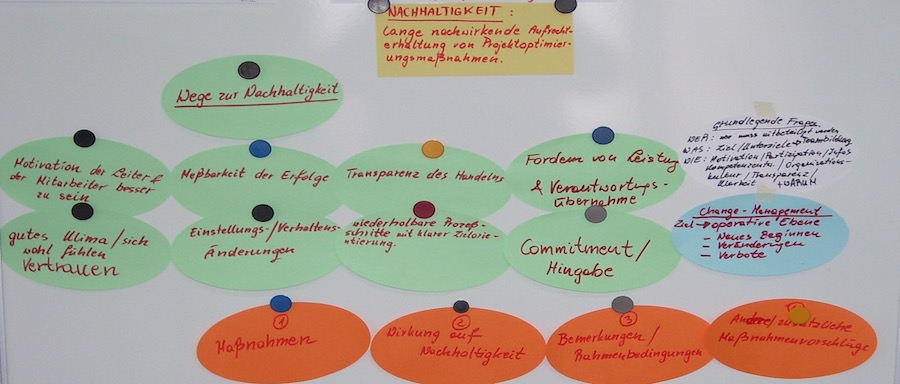 NACHHALTIGKEIT:
Lange nachwirkende Aufrecht-
erhaltung von Projektoptimier-
ungsmaßnahmen.
Wege zur Nachhaltigkeit
Motivation der Leiter &
der Mitarbeiter besser
zu sein
Meßbarkeit der Erfolge
Transparenz des Handelns
Fordern von Leistung
& Verantwortungs-
übernahme
grundlegende Fragen
WER: wer muss mitbeteiligt werden
WAS: Ziel/Unterziele → Teambildung
WIE: Motivation/Partizipation/Infos
/Organisations-
kultur/Transparenz/
Klarheit + WARUM
gutes Klima/sich
wohl fühlen
Vertrauen
Einstellungs-/Verhaltens-
Änderungen
wiederholbare Prozeß-
schritte mit klarer Zielorie-
ntierung.
Commitment/
Hingabe
Change-Management
Ziel → operative Ebene
- Neues Beginnen
- Veränderungen
- Verbote
1
Maßnahmen
2
Wirkung auf
Nachhaltigkeit
3
Bemerkungen/
Rahmenbedingungen
Andere/zusätzliche
Maßnahmenvorschläge